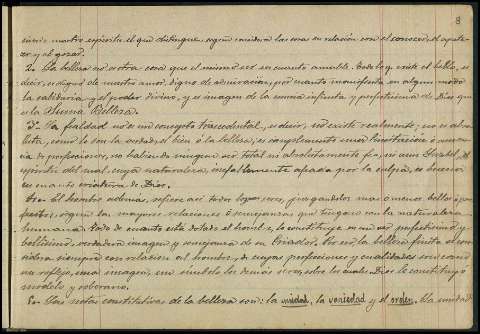 8
nuestro espíritu el que distingue, según considera las cosas en relación con el conocer, el apete-
cer y el gozar.
2.a La belleza no es otra cosa que el mismo ser en cuanto amable. Todo lo que existe es bello, es
decir, es digno de nuestro amor, digno de admiración, por cuanto manifiesta en algún modo
la sabiduría y el poder divino, y es imagen de la suma infinita, y perfectísima de Dios, que
es la Suma Belleza.
3.a La fealdad no es un concepto trascendental, es decir, no existe realmente; no es abso-
luta, como lo son la verdad, el bien o la belleza, es simplemente una limitación o caren-
cia de perfecciones, no habiendo ningún ser total ni absolutamente feo, ni aun Luzbel, el
espíritu del mal, cuya naturaleza, inefablemente afeada por la culpa, es hermosa
en cuanto criatura de Dios.
4.a El hombre además, refiere a sí todos los seres, juzgándolos más o menos bellos o per-
fectos, según las mayores relaciones o semejanzas que tengan con la naturaleza
humana. Todo de cuanto está dotado el hombre, le constituye en un ser perfectísimo y
bellísimo, verdadera imagen y semejanza de su Criador. Por eso la belleza finita se con-
sidera siempre con relación al hombre, de cuyas perfecciones y cualidades son como
un reflejo, una imagen, un símbolo los demás seres, sobre los cuales Dios le constituyó
modelo y soberano.
5.a Las notas constitutivas de la belleza son: la unidad, la variedad y el orden. La unidad